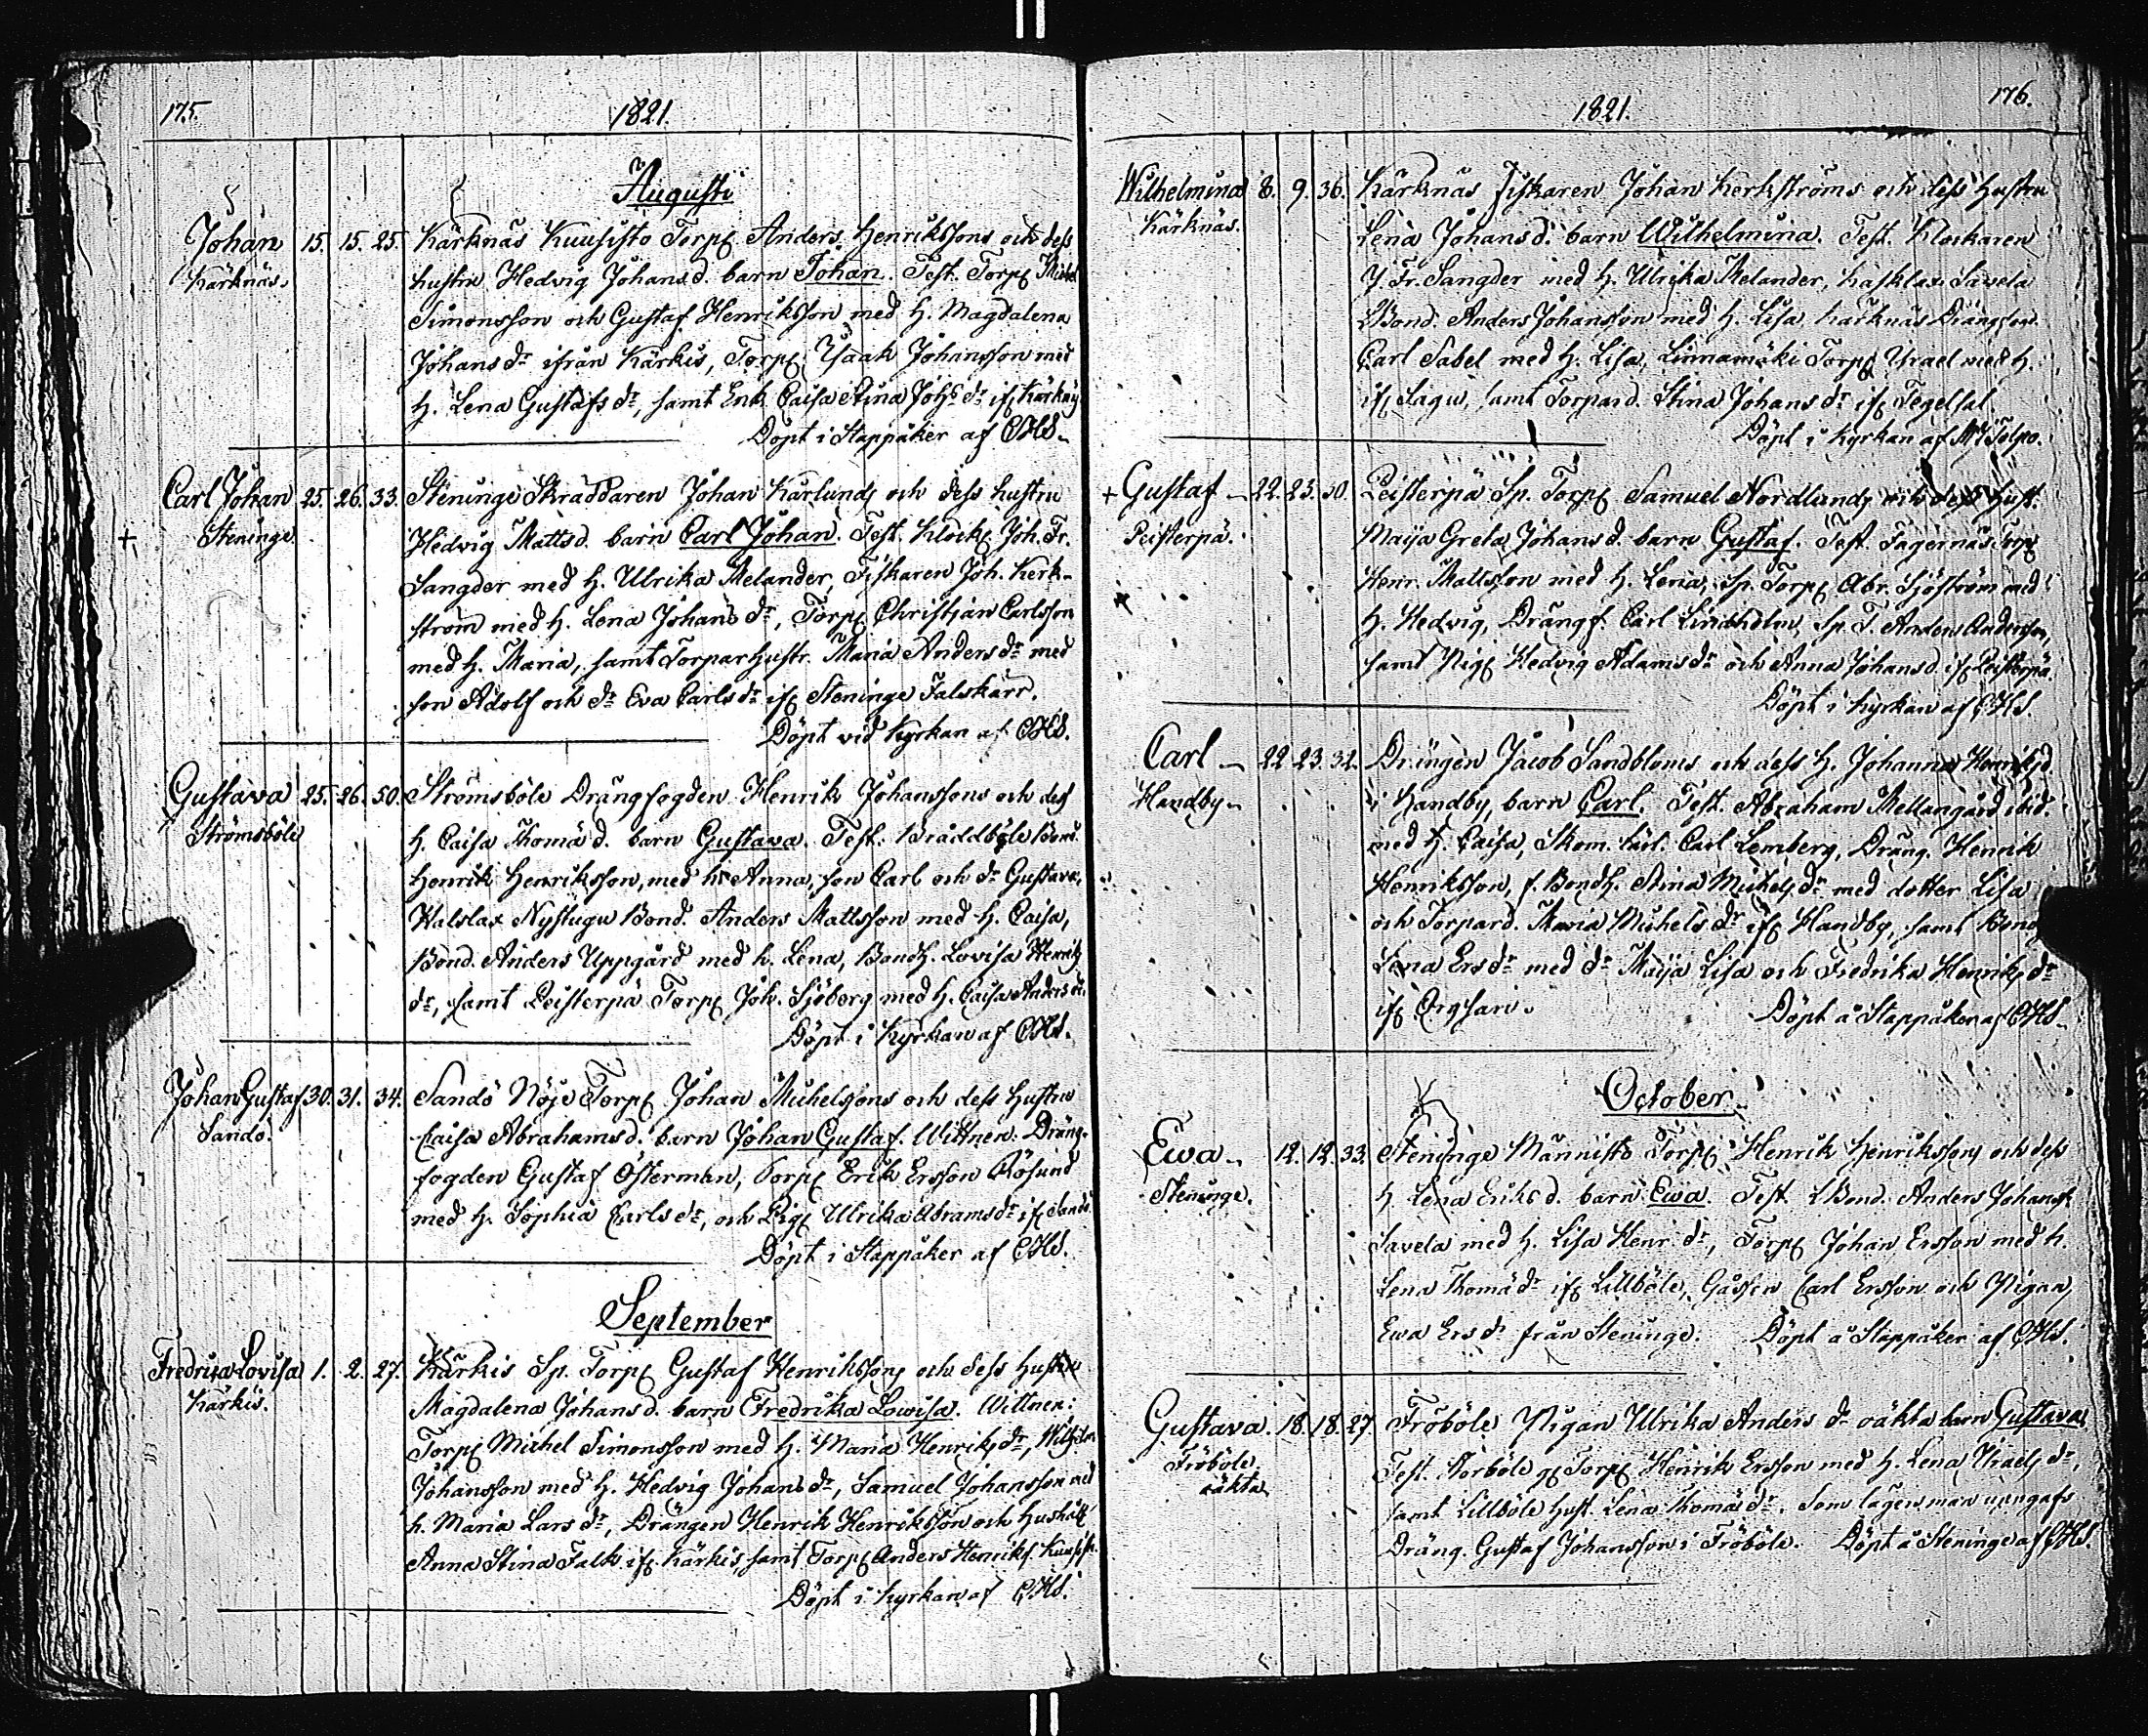 175.
1821.
Augusti
Johan 15. 15. 25. Kärknäs Kuusisto Torp. Anders Henrikssons och dess
Kärknäs. hustru Hedvig Johansd. barn Johan. Test. Torp. Michel
Simonsson och Gustaf Henriksson med h. Magdalena
Johans dr ifrån Kärkis, Torp. Isaak Johansson med
h. Lena Gustafs dr, samt Enk. Caisa Stina Johs dr if. Kärknäs
Döpt i Stappåker af CHS.
Carl Johan 25. 26. 33. Steninge Skräddaren Johan Karlunds och dess hustru
Steninge Hedvig Mattsd. barn Carl Johan. Test. Klock. Joh. Fr.
+
Sangder med h. Ulrika Melander, Fiskaren Joh. Kerk-
ström med h. Lena Johans dr, Torp. Christian Carlsson
med h. Maria, samt Torparhustr. Maria Anders dr med
son Adolf och dr Eva Carls dr if. Steninge Falskärr.
Döpt vid Kyrkan af CHS.
Gustava 25. 26. 50. Strömsböle Drängfogden Henrik Johanssons och dess
Strömsböle h. Caisa Thomæ d. barn Gustava. Test. Bräddböle Bond.
Henrik Henriksson, med h. Anna, son Carl och dr Gustava,
Halslax Nystugu Bond. Anders Mattsson med h. Caisa,
Bond. Anders Uppgård med h. Lena, Bondh. Lovisa Henriks
dr, samt Peisterpä Torp. Joh. Sjöberg med h. Caisa Anders dr.
Döpt i Kyrkan af CHS.
Johan Gustaf 30. 31. 34. Sandö Nöje Torp. Johan Michelsons och dess hustru
Sandö. Caisa Abrahamsd. barn Johan Gustaf. Wittnen: Dräng-
fogden Gustaf Österman, Torp. Erik Ersson Rösund
med h. Sophia Carls dr, och Pig. Ulrika Abrams dr if. Sandö
Döpt i Stappåker af CHS.
September
Fredrica Lovisa 1. 2. 27. Kärkis Sp. Torp. Gustaf Henrikssons och dess hustru
Kärkis. Magdalena Johansd. barn Fredrika Lowisa. Wittnen:
Torp. Michel Simonsson med h. Maria Henriks dr, Wilhelm
Johansson med h. Hedvig Johans dr, Samuel Johansson med
h. Maria Lars dr, Drängen Henrik Henriksson och Hushåll.
Anna Stina Falk if. Kärkis, samt Torp. Anders Henriks. Kuusist.
Döpt i Kyrkan af CHS.
1821.
176.
Wilhelmina 8. 9. 36. Kärknäs Fiskaren Johan Kerkströms och dess hustru
Kärknäs. Lena Johansd. barn Wilhelmina. Test. Klockaren
J. Fr. Sangder med h. Ulrika Melander, Savela
LBond. Anders Johansson med h. Lisa, Kärknäs Drängfogd.
Carl Sabel med h. Lisa, Linnamäki Torp. Israel med h.
if. Sagu, samt Torpard. Stina Johans dr if. Tegelsal.
Döpt i Kyrkan af Tolpo.
+ Gustaf 22. 23. 30. Peisterpä Sp. Torp. Samuel Nordlunds och dess hust.
Peisterpä. Maija Greta Johansd. barn Gustaf. Test. Fagernäs Torp
Henr. Mattsson med h. Lena, Sp. Torp. Abr. Sjöström med
h. Hedvig, Drängf. Carl Lindholm, Sp. T. Anders Andersson,
samt Pig. Hedvig Adams dr och Anna Johansd. if. Peisterpä.
Döpt i Kyrkan af CHS.
Carl 22 23. 32. Drängen Jacob Sandbloms och dess h. Johanna Henriksd.
Handby i Handby, barn Carl. Test. Abraham Mellangård ibid.
med h. Caisa, Skom. lärl. Carl Lemberg, Dräng. Henrik
Henriksson, f. Bondh. Stina Michels dr med dotter Lisa
och Torpard. Maria Michels dr if. Handby, samt Bond.
Lena Ers dr med dr Maija Lisa och Fredrika Henriks dr
if. Orgsari. Döpt å Stappåker af CHS.
October
Ewa 12. 12. 33. Steninge Männistö Torp. Henrik Henrikssons och dess
Steninge. h. Lena Eriks d. barn Ewa. Test. LBond. Anders Johanss.
Savela med h. Lisa Henr. dr, Torp. Johan Ersson med h.
Lena Thomæ dr if. Lillböle, Gossen Carl Ersson och Pigan
Ewa Ers dr från Steninge. Döpt å Stappåker af CHS.
Gustava. 18. 18. 27. Fröböle Pigan Ulrika Anders dr oäkta barn Gustava,
Fröböle. Test. Storböle Torp. Henrik Ersson med h. Lena Israels dr,
oäkta samt Lillböle hust. Lena Thomæ dr. Som lägersman uppgafs
Dräng. Gustaf Johansson i Fröböle. Döpt å Steninge af CHS.